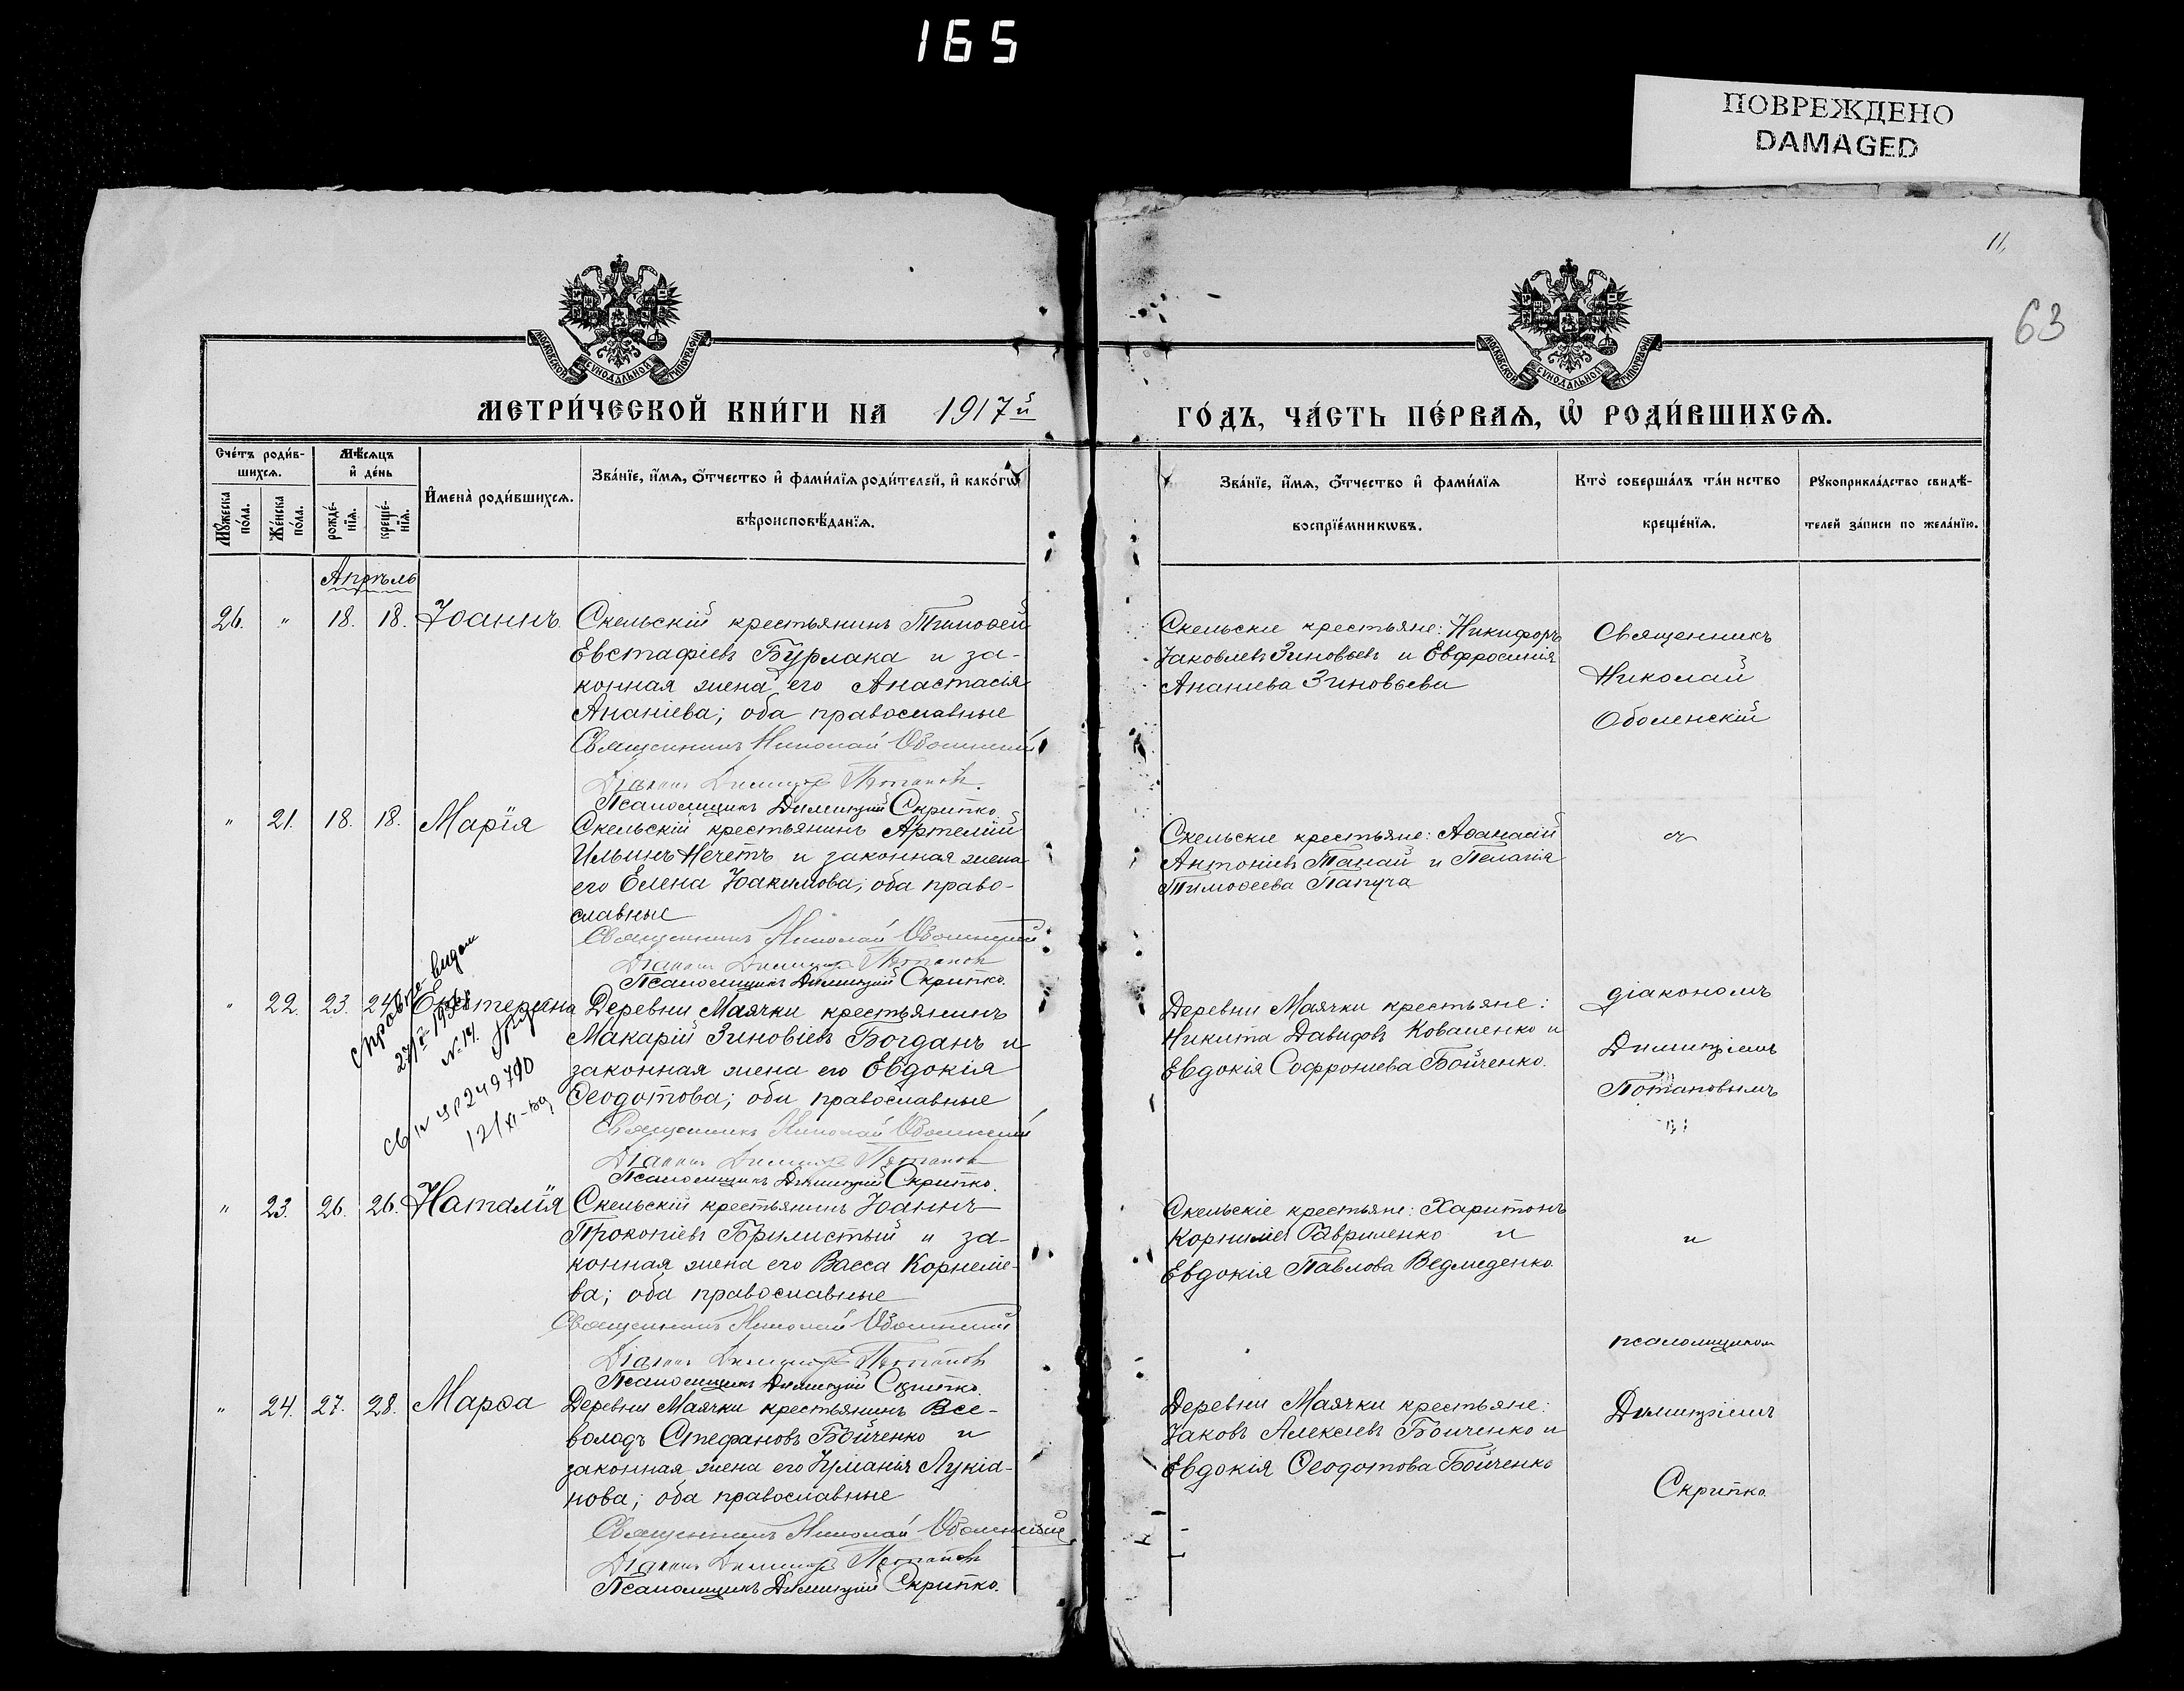 165
ПОВРЕЖДЕНО
DAMAGED
11,
63
МОСКОВСКОЙ СѴНОДАЛЬНОЙ ТИПОГРАФІИ
МОСКОВСКОЙ СѴНОДАЛЬНОЙ ТИПОГРАФІИ
МЕТРИ́ЧЕСКОЙ КНИ́ГИ НА 1917й
ГО́ДЪ, ЧА́СТЬ ПЕ́РВАѦ, Ѡ҆ РОДИ́ВШИХСѦ.
Счétъ роди́в-
шихсѧ.
Мѣ́сѧцъ
и҆ де́нь
Мꙋ́жеска
по́ла.
Же́нска
по́ла.
рожде́-
нїѧ.
креще́-
нїѧ.
И҆мена̀ роди́вшихсѧ.
Зва́нїе, и҆́мѧ, ѻ҆́тчество и҆ фами́лїѧ роди́телей, и҆ како́гѡ
вѣроисповѣ́данїѧ.
Зва́нїе, и҆́мѧ, ѻ҆́тчество и҆ фами́лїѧ
воспрїе́мникѡвъ.
Кто̀ соверша́лъ та́инство
креще́нїѧ.
Рꙋкоприкла́дство свидѣ́-
телей за́писи по жела́нїю.
Апрѣль
26. " 18. 18. Іоаннъ
Скельскій крестьянинъ Тимоѳей
Евстафіевъ Бурлака и за-
конная жена его Анастасія
Ананіева; оба православные
Священникъ Николай Оболенскій
Діаконъ Димитрій Потаповъ.
Псаломщикъ Димитрій Скрипко.
Скельскіе крестьяне: Никифоръ
Іаковлевъ Зиновьевъ и Евфросинія
Ананіева Зиновьева
Священникъ
Николай
Оболенскій
" 21. 18. 18. Марія
Скельскій крестьянинъ Артемій
Ильинъ Нечетъ и законная жена
его Елена Іоакимова; оба право-
славные
Священникъ Николай Оболенскій
Діаконъ Димитрій Потаповъ
Псаломщикъ Димитрій Скрипко.
Скельскіе крестьяне: Аѳанасій
Антоніевъ Танай и Пелагія
Тимоѳеева Папуча
" 22. 23. 24. Екатерина
Деревни Маячки крестьянинъ
Макарій Зиновіевъ Богданъ и
законная жена его Евдокія
Ѳеодотова; оба православные
Священникъ Николай Оболенскій
Діаконъ Димитрій Потаповъ
Псаломщикъ Димитрій Скрипко.
N. 14.
249790
Деревни Маячки крестьяне:
Никита Давидовъ Коваленко и
Евдокія Софроніева Бойченко.
діакономъ
Димитріемъ
Потаповымъ
" 23. 26. 26. Наталія
Скельскій крестьянинъ Іоаннъ
Прокопіевъ Брилистый и за-
конная жена его Васса Корнеліе-
ва; оба православные
Священникъ Николай Оболенскій
Діаконъ Димитрій Потаповъ
Псаломщикъ Димитрій Скрипко.
Скельскіе крестьяне: Харитонъ
Корниліевъ Гавриленко и
Евдокія Павлова Ведмеденко
и
" 24. 27. 28. Марѳа
Деревни Маячки крестьянинъ Все-
володъ Стефановъ Бойченко и
законная жена его Іуманія Лукіа-
нова; оба православные
Священникъ Николай Оболенскій
Діаконъ Димитрій Потаповъ
Псаломщикъ Димитрій Скрипко.
Деревни Маячки крестьяне:
Іаковъ Алексіевъ Бойченко и
Евдокія Ѳеодотова Бойченко
псаломщиком
Димитріемъ
Скрипко.